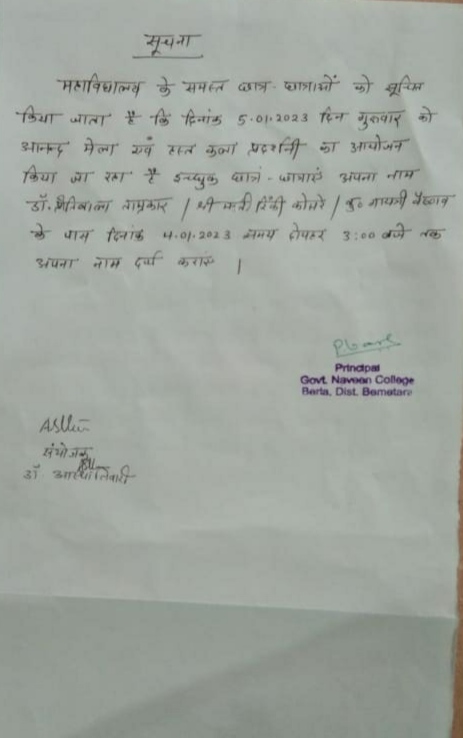 सूचना
महाविद्यालय के समस्त छात्र-छात्राओं को सूचित
किया जाता है कि दिनांक 5.01.2023 दिन गुरुवार को
आनन्द मेला एवं हस्त कला प्रदर्शनी का आयोजन
किया जा रहा है इच्छुक छात्र-छात्राएं अपना नाम
डॉ. ताम्रकार / श्रीमती रिंकी / कु० गायत्री वैष्णव
के पास दिनांक 4.01.2023 समय दोपहर 3:00 बजे तक
अपना नाम दर्ज कराएं |
Principal
Govt. Naveen College
Berla, Dist. Bemetara
संयोजक
डॉ. आस्था तिवारी